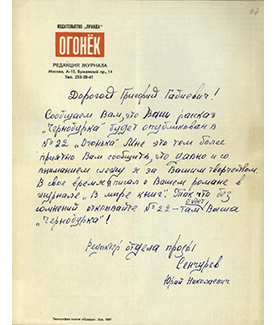 67
ИЗДАТЕЛЬСТВО „ПРАВДА“
ОГОНЁК
РЕДАКЦИЯ ЖУРНАЛА
Москва, А-15, Бумажный пр., 14
Тел. 253-38-61
Дорогой Григорий Габиевич!
Сообщаем Вам, что Ваш рассказ
„Чернобурка“ будет опубликован в
№ 22 „Огонька“. Мне это тем более
приятно Вам сообщить, что давно и со
вниманием слежу я за Вашим творчеством.
В свое время писал о Вашем романе в
журнале „В мире книг“. Так что без
сомнений открывайте № 22 – там будет Ваша
„Чернобурка“!
Редактор отдела прозы
Сенчуров
Юрий Николаевич